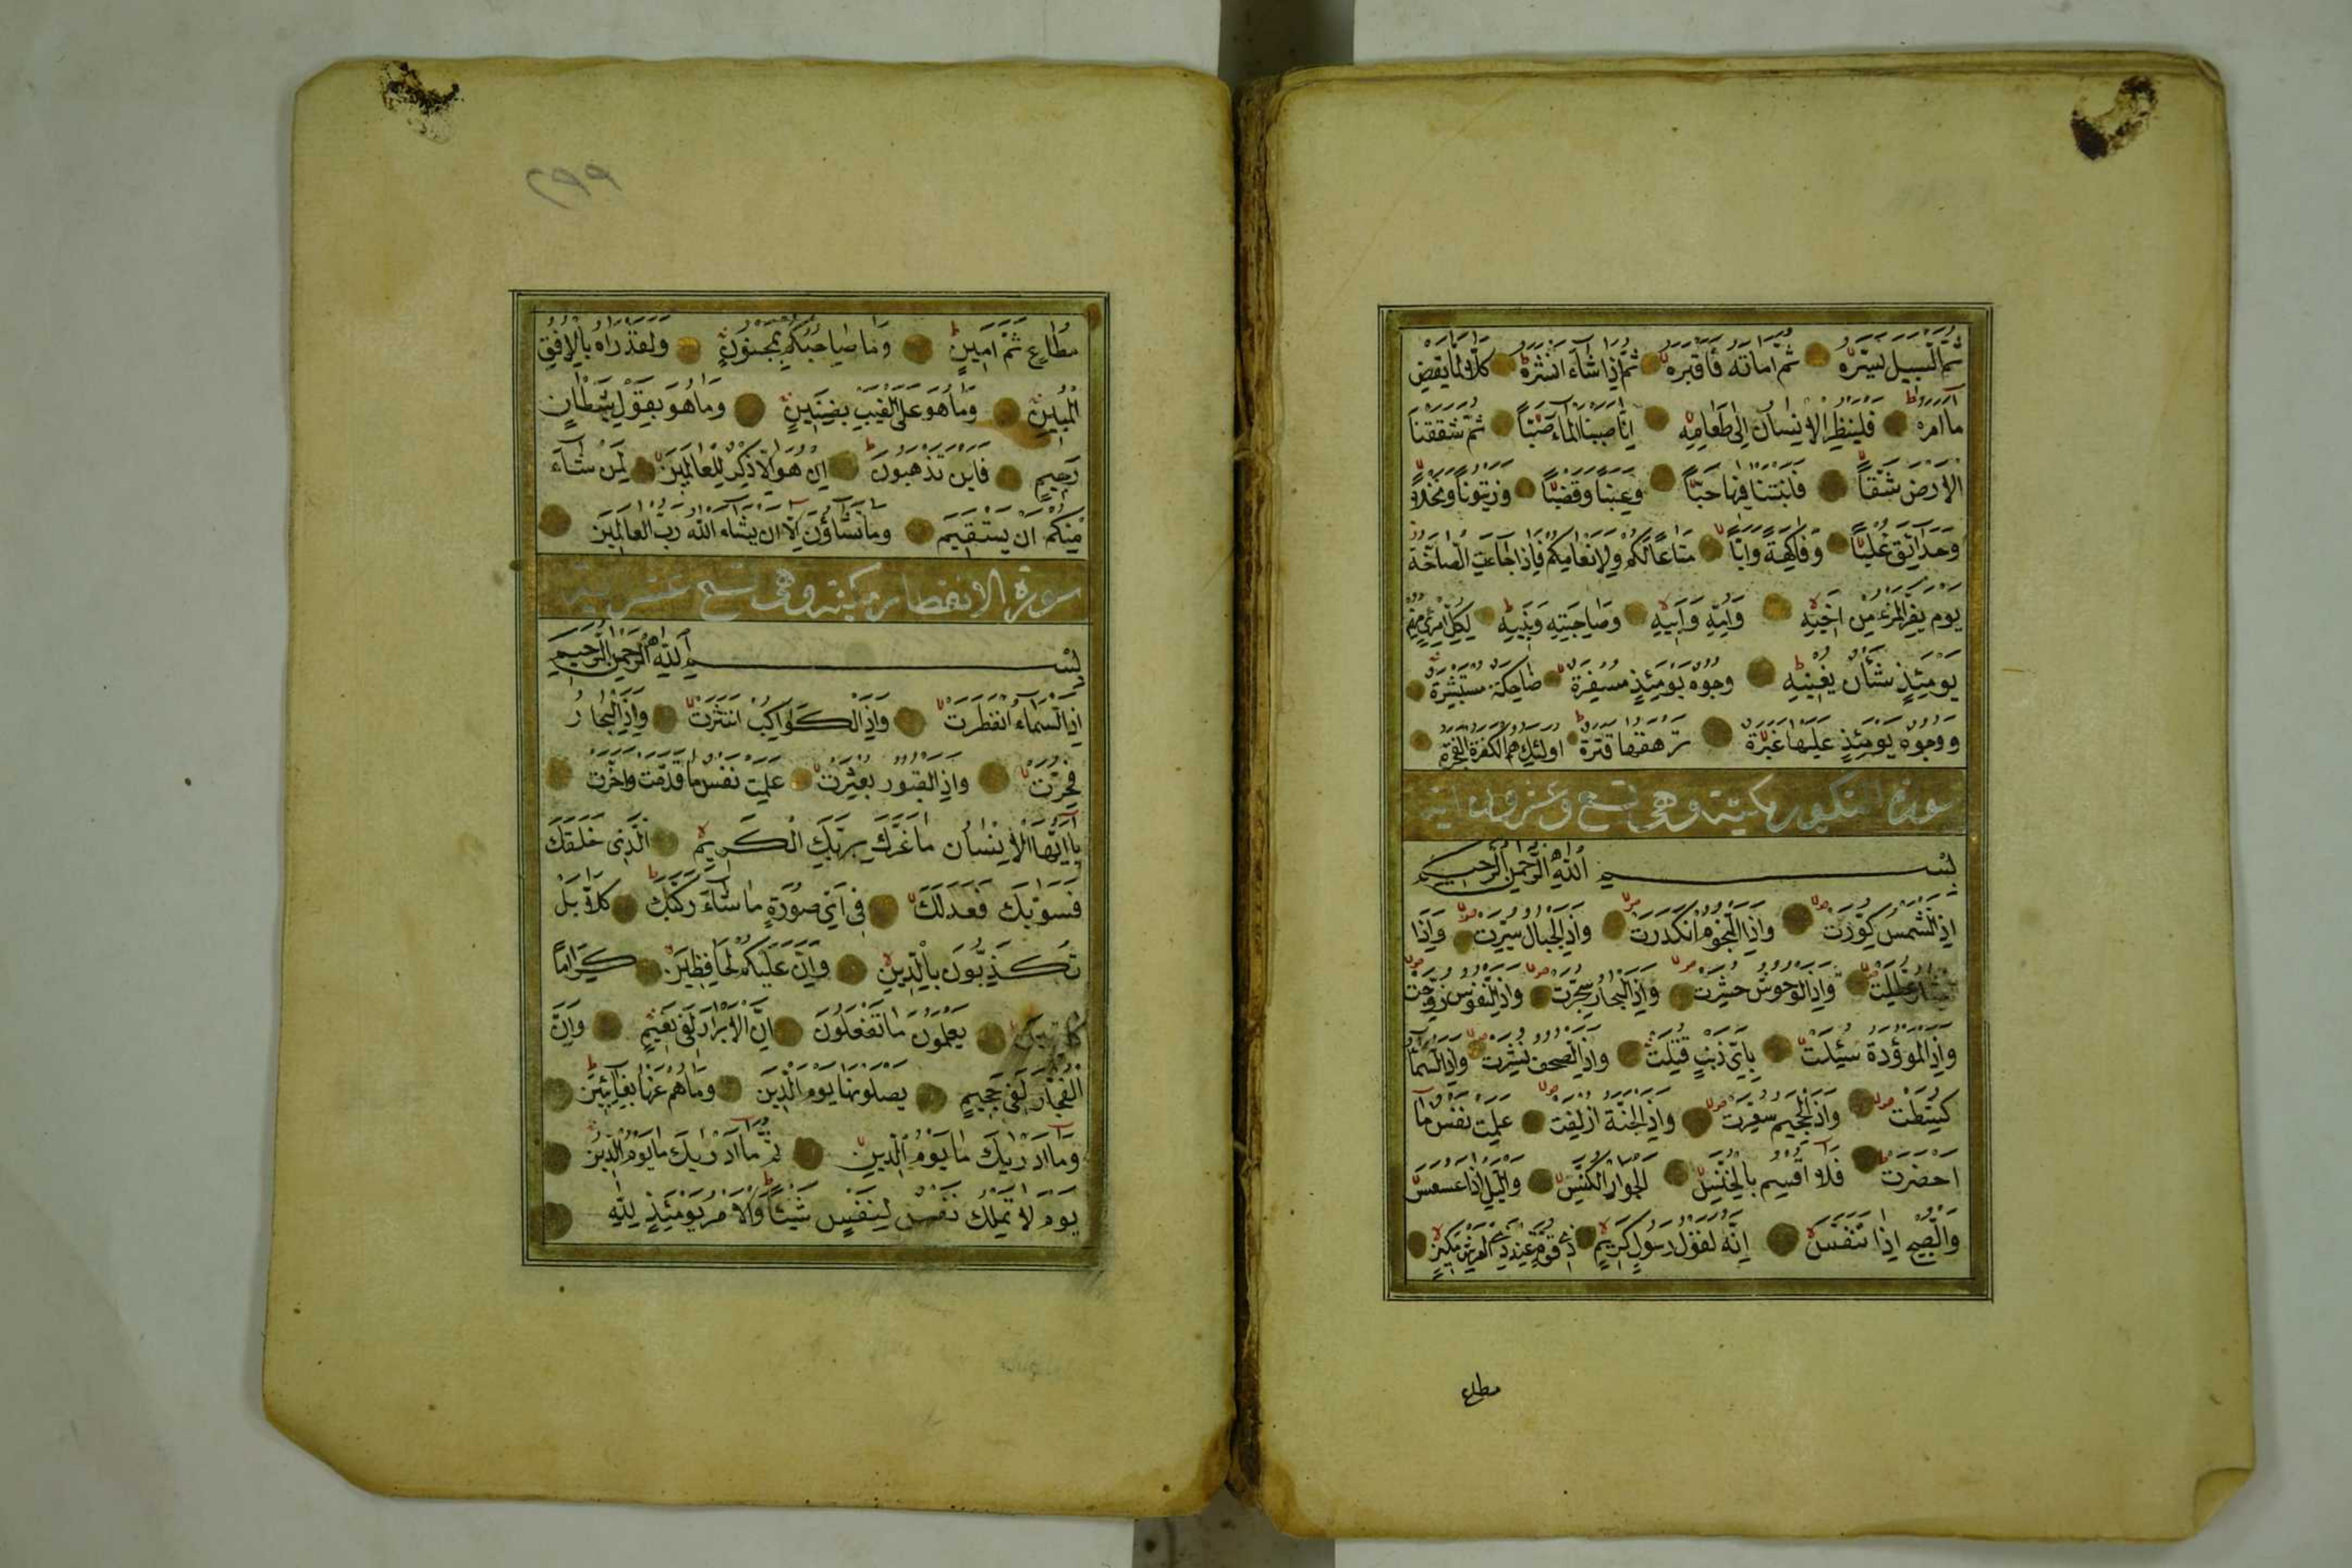 ثُمَّ السَّبِيلَ يَسَّرَهُ ثُمَّ اَمَاتَهُ فَاَقْبَرَهُ ثُمَّ اِذَا شَاءَ اَنْشَرَهُ كَلَّا لَمَّا يَقْضِ
مَا اَمَرَهُ فَلْيَنْظُرِ الْاِنْسَانُ اِلَى طَعَامِهِ اَنَّا صَبَبْنَا الْمَاءَ صَبًّا ثُمَّ شَقَقْنَا
الْاَرْضَ شَقًّا فَاَنْبَتْنَا فِيهَا حَبًّا وَعِنَبًا وَقَضْبًا وَزَيْتُونًا وَنَخْلًا
وَحَدَائِقَ غُلْبًا وَفَاكِهَةً وَاَبًّا مَتَاعًا لَكُمْ وَلِاَنْعَامِكُمْ فَاِذَا جَاءَتِ الصَّاخَّةُ
يَوْمَ يَفِرُّ الْمَرْءُ مِنْ اَخِيهِ وَاُمِّهِ وَاَبِيهِ وَصَاحِبَتِهِ وَبَنِيهِ لِكُلِّ امْرِئٍ مِنْهُمْ
يَوْمَئِذٍ شَأْنٌ يُغْنِيهِ وُجُوهٌ يَوْمَئِذٍ مُسْفِرَةٌ ضَاحِكَةٌ مُسْتَبْشِرَةٌ
وَوُجُوهٌ يَوْمَئِذٍ عَلَيْهَا غَبَرَةٌ تَرْهَقُهَا قَتَرَةٌ اُولَئِكَ هُمُ الْكَفَرَةُ الْفَجَرَةُ
سورة التكوير مكية وهى تسع وعشرون اية
بِسْمِ اللّٰهِ الرَّحْمٰنِ الرَّحِيمِ
اِذَا الشَّمْسُ كُوِّرَتْ وَاِذَا النُّجُومُ انْكَدَرَتْ وَاِذَا الْجِبَالُ سُيِّرَتْ وَاِذَا
الْعِشَارُ عُطِّلَتْ وَاِذَا الْوُحُوشُ حُشِرَتْ وَاِذَا الْبِحَارُ سُجِّرَتْ وَاِذَا النُّفُوسُ زُوِّجَتْ
وَاِذَا الْمَوْؤُدَةُ سُئِلَتْ بِاَيِّ ذَنْبٍ قُتِلَتْ وَاِذَا الصُّحُفُ نُشِرَتْ وَاِذَا السَّمَاءُ
كُشِطَتْ وَاِذَا الْجَحِيمُ سُعِّرَتْ وَاِذَا الْجَنَّةُ اُزْلِفَتْ عَلِمَتْ نَفْسٌ مَا
اَحْضَرَتْ فَلَا اُقْسِمُ بِالْخُنَّسِ الْجَوَارِ الْكُنَّسِ وَاللَّيْلِ اِذَا عَسْعَسَ
وَالصُّبْحِ اِذَا تَنَفَّسَ اِنَّهُ لَقَوْلُ رَسُولٍ كَرِيمٍ ذِي قُوَّةٍ عِنْدَ ذِي الْعَرْشِ مَكِينٍ
مطاع
٢٩٩
مُطَاعٍ ثَمَّ اَمِينٍ وَمَا صَاحِبُكُمْ بِمَجْنُونٍ وَلَقَدْ رَاٰهُ بِالْاُفُقِ
الْمُبِينِ وَمَا هُوَ عَلَى الْغَيْبِ بِضَنِينٍ وَمَا هُوَ بِقَوْلِ شَيْطَانٍ
رَجِيمٍ فَاَيْنَ تَذْهَبُونَ اِنْ هُوَ اِلَّا ذِكْرٌ لِلْعَالَمِينَ لِمَنْ شَاءَ
مِنْكُمْ اَنْ يَسْتَقِيمَ وَمَا تَشَاؤُنَ اِلَّا اَنْ يَشَاءَ اللّٰهُ رَبُّ الْعَالَمِينَ
سورة الانفطار مكية وهى تسع عشر اية
بِسْمِ اللّٰهِ الرَّحْمٰنِ الرَّحِيمِ
اِذَا السَّمَاءُ انْفَطَرَتْ وَاِذَا الْكَوَاكِبُ انْتَثَرَتْ وَاِذَا الْبِحَارُ
فُجِّرَتْ وَاِذَا الْقُبُورُ بُعْثِرَتْ عَلِمَتْ نَفْسٌ مَا قَدَّمَتْ وَاَخَّرَتْ
يَا اَيُّهَا الْاِنْسَانُ مَا غَرَّكَ بِرَبِّكَ الْكَرِيمِ الَّذِي خَلَقَكَ
فَسَوّٰيكَ فَعَدَلَكَ فِي اَيِّ صُورَةٍ مَا شَاءَ رَكَّبَكَ كَلَّا بَلْ
تُكَذِّبُونَ بِالدِّينِ وَاِنَّ عَلَيْكُمْ لَحَافِظِينَ كِرَامًا
كَاتِبِينَ يَعْلَمُونَ مَا تَفْعَلُونَ اِنَّ الْاَبْرَارَ لَفِي نَعِيمٍ وَاِنَّ
الْفُجَّارَ لَفِي جَحِيمٍ يَصْلَوْنَهَا يَوْمَ الدِّينِ وَمَا هُمْ عَنْهَا بِغَائِبِينَ
وَمَا اَدْرٰيكَ مَا يَوْمُ الدِّينِ ثُمَّ مَا اَدْرٰيكَ مَا يَوْمُ الدِّينِ
يَوْمَ لَا تَمْلِكُ نَفْسٌ لِنَفْسٍ شَيْئًا وَالْاَمْرُ يَوْمَئِذٍ لِلّٰهِ